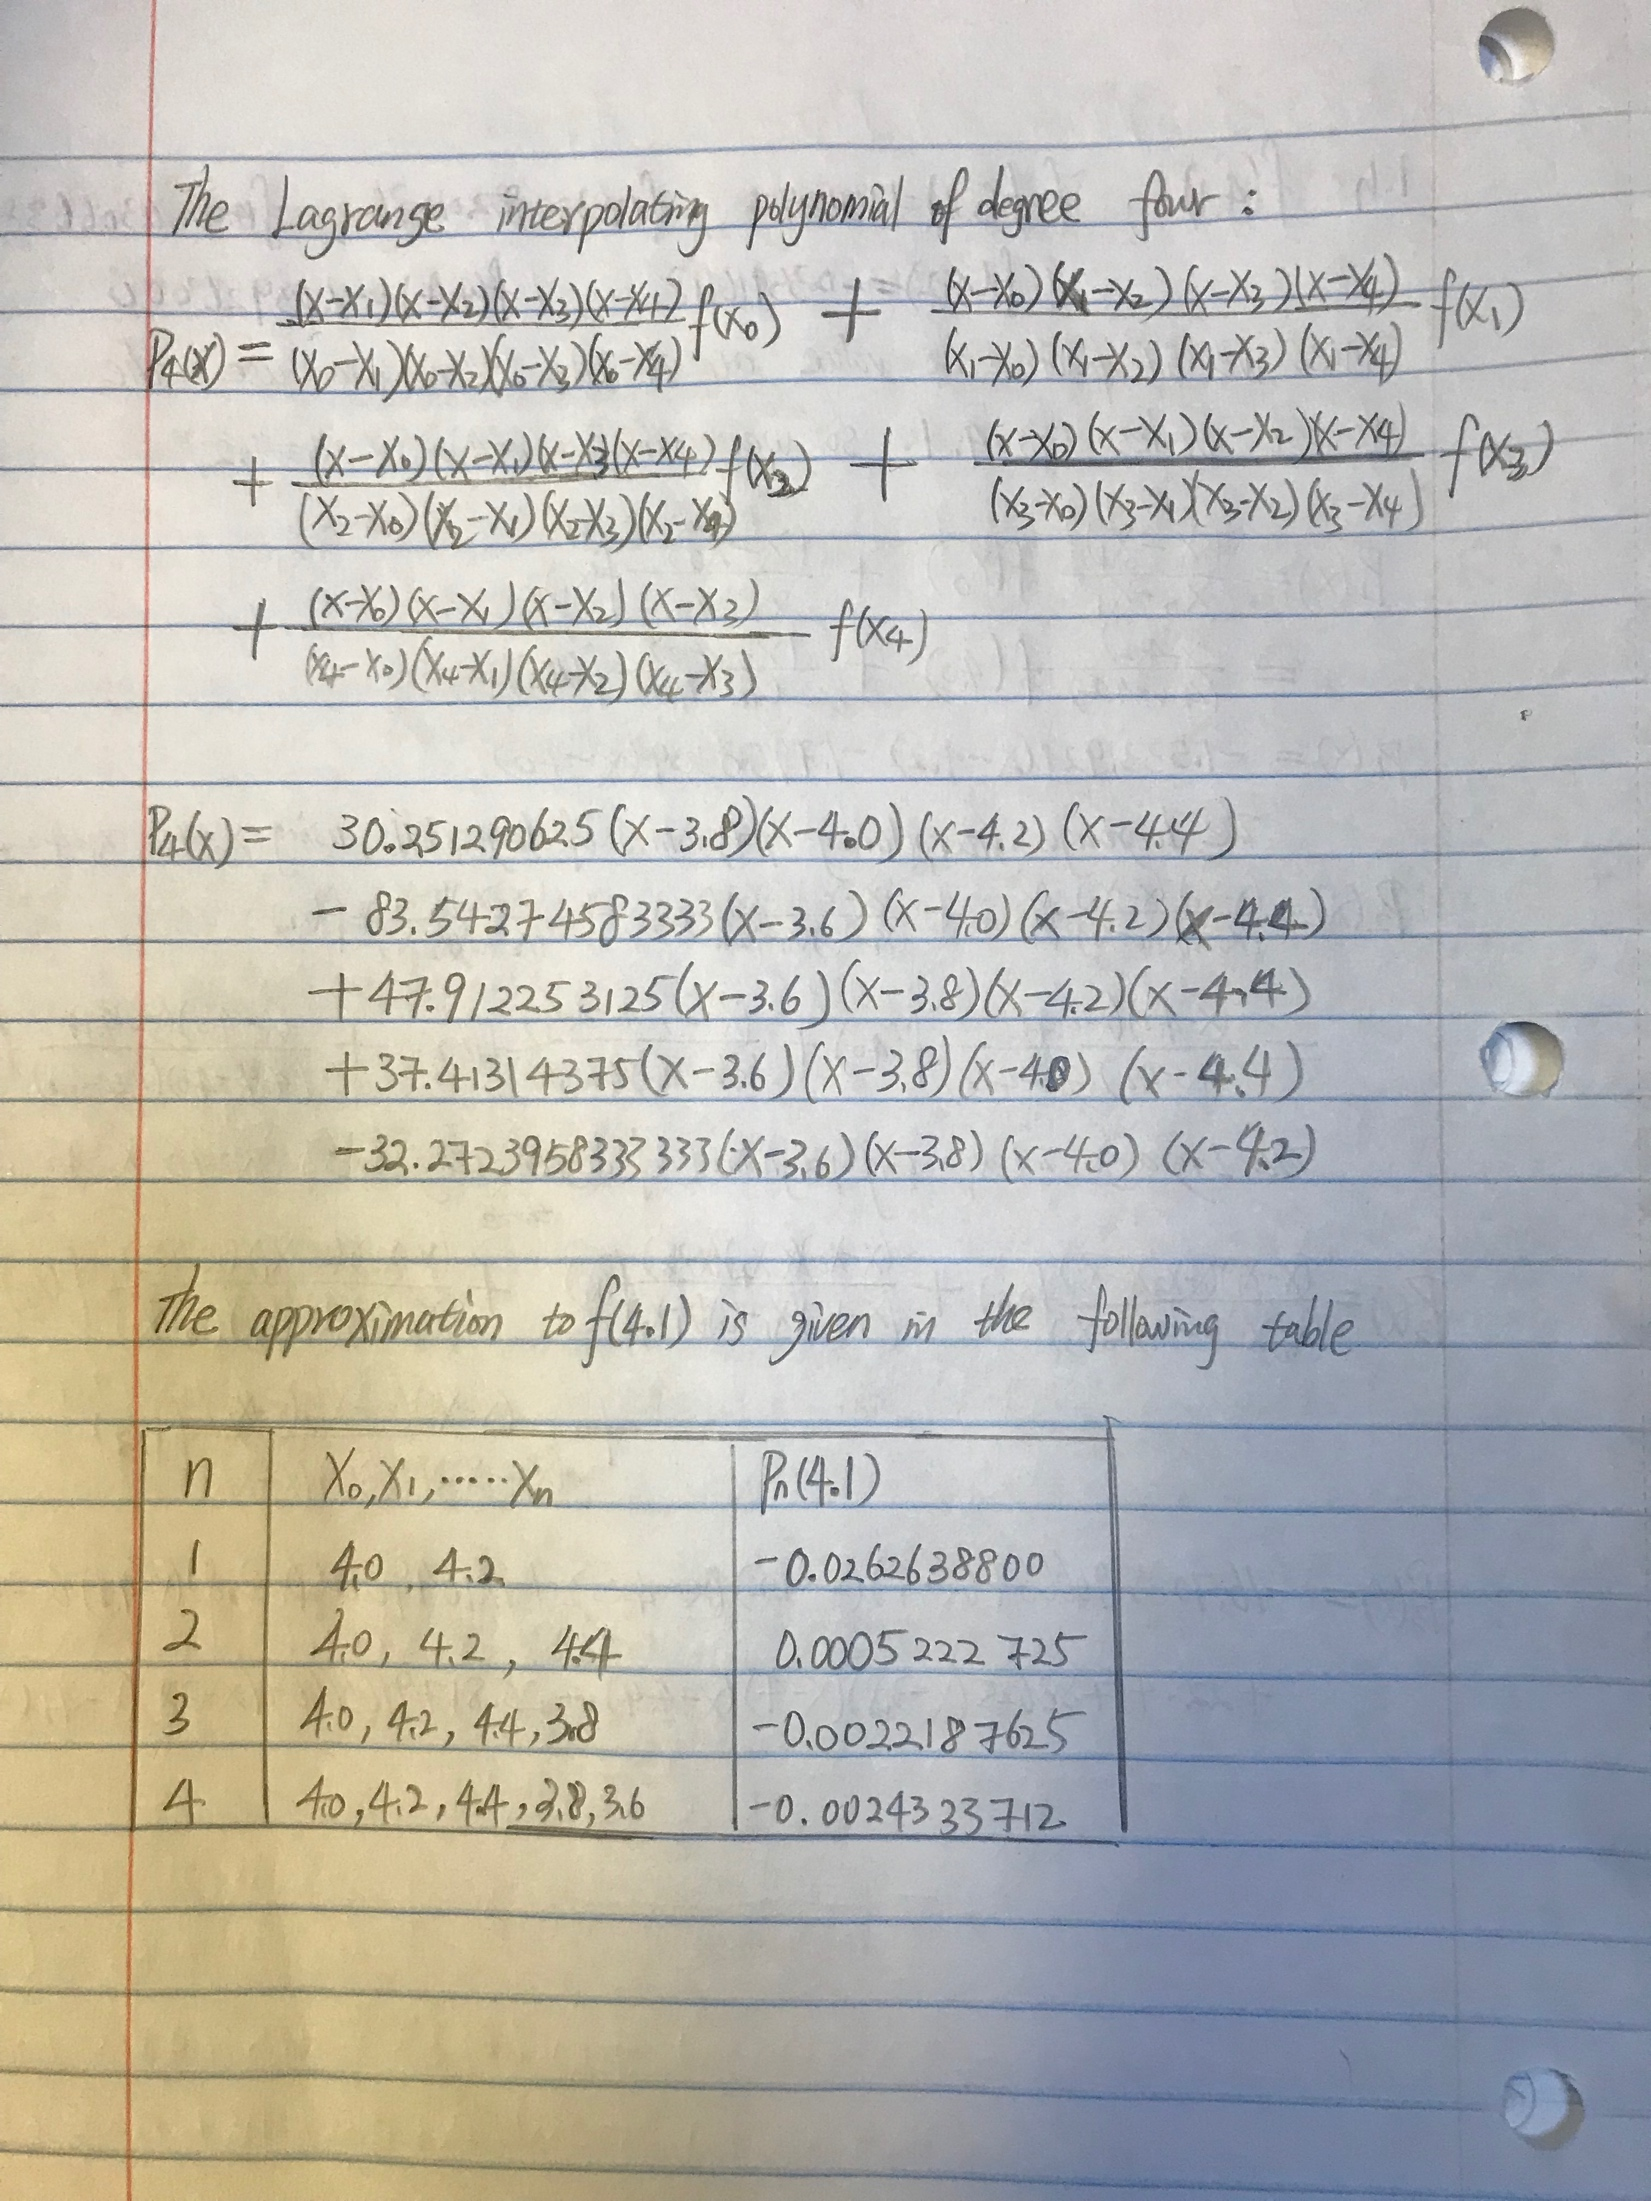 The Lagrange interpolating polynomial of degree four :
P4(x) = (x-x1)(x-x2)(x-x3)(x-x4) / (x0-x1)(x0-x2)(x0-x3)(x0-x4) f(x0) + (x-x0)(x1-x2)(x-x3)(x-x4) / (x1-x0)(x1-x2)(x1-x3)(x1-x4) f(x1)
+ (x-x0)(x-x1)(x-x3(x-x4) / (x2-x0)(x2-x1)(x2-x3)(x2-x4) f(x2) + (x-x0)(x-x1)(x-x2)(x-x4) / (x3-x0)(x3-x1)(x3-x2)(x3-x4) f(x3)
+ (x-x0)(x-x1)(x-x2)(x-x3) / (x4-x0)(x4-x1)(x4-x2)(x4-x3) f(x4)
P4(x) = 30.251290625(x-3.8)(x-4.0)(x-4.2)(x-4.4)
- 83.54274583333(x-3.6)(x-4.0)(x-4.2)(x-4.4)
+47.9122253125(x-3.6)(x-3.8)(x-4.2)(x-4.4)
+37.41314375(x-3.6)(x-3.8)(x-4.0)(x-4.4)
-32.2723958333333(x-3.6)(x-3.8)(x-4.0)(x-4.2)
The approximation to f(4.1) is given in the following table
n x0,x1,.....xn Pn(4.1)
1 4.0, 4.2 -0.0262638800
2 4.0, 4.2, 4.4 0.0005222725
3 4.0, 4.2, 4.4, 3.8 -0.0022187625
4 4.0, 4.2, 4.4, 3.8, 3.6 -0.0024333712